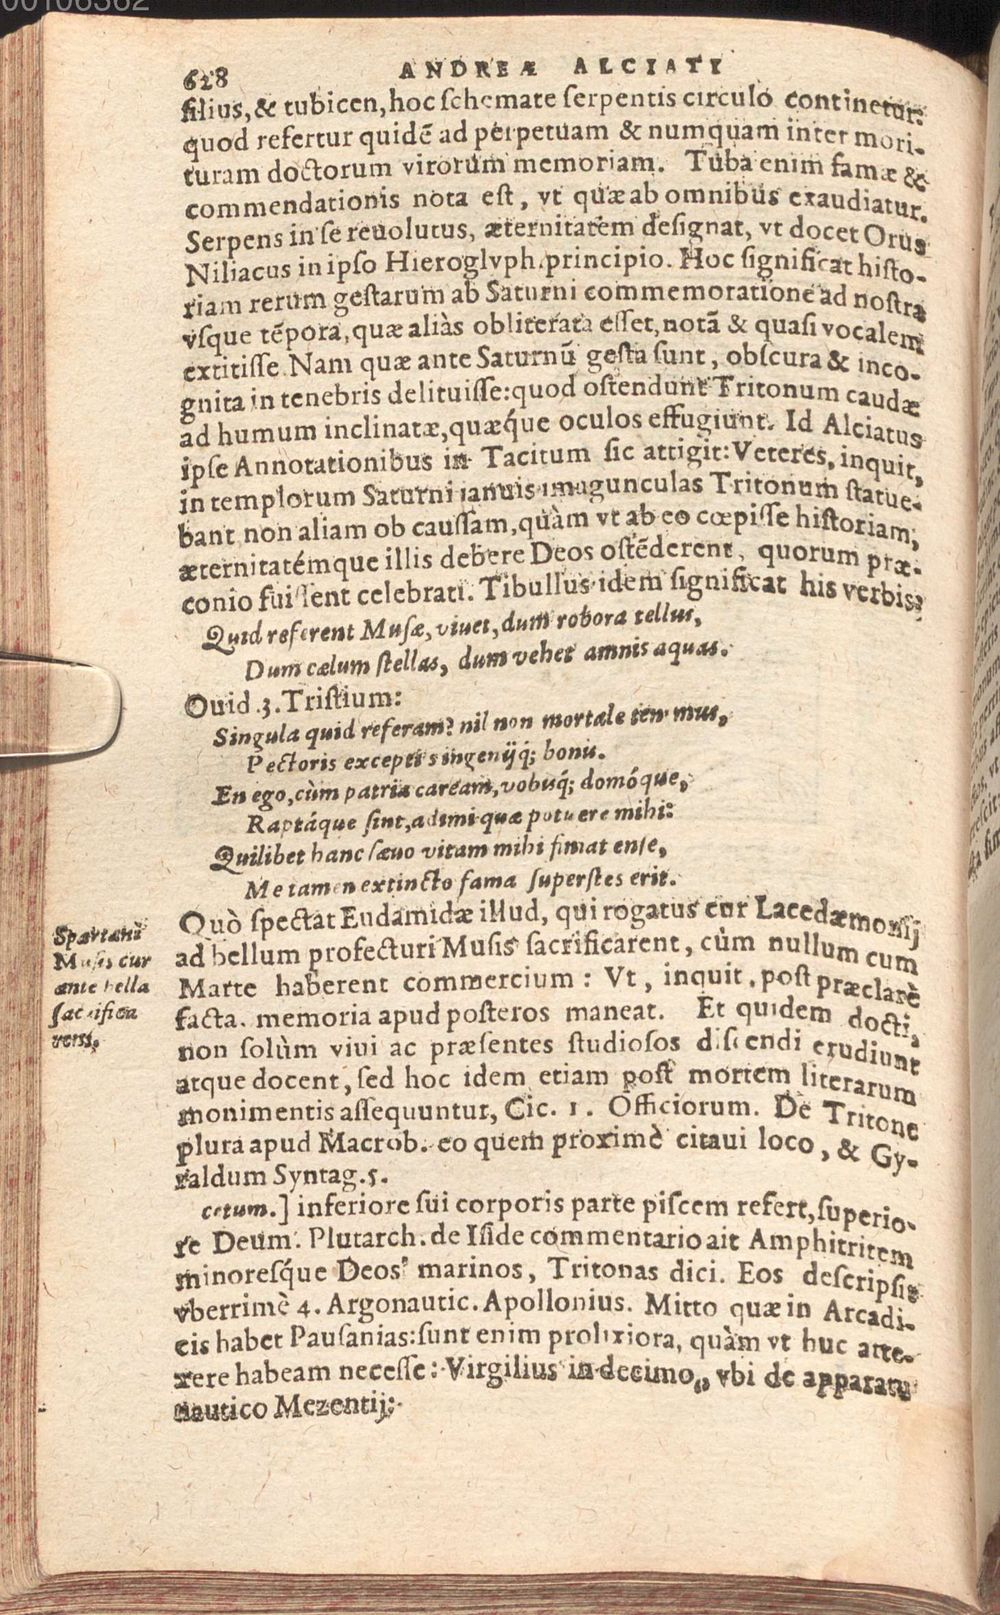 00106362
628 ANDREÆ ALCIATI
filius, & tubicen, hoc schemate serpentis circulo continetur:
quod refertur quidẽ ad perpetuam & numquam inter mori-
turam doctorum virorum memoriam. Tuba enim famæ &
commendationis nota est, vt quæ ab omnibus exaudiatur.
Serpens in se reuolutus, æternitatem designat, vt docet Orus
Niliacus in ipso Hieroglyph. principio. Hoc significat histo-
riam rerum gestarum ab Saturni commemoratione ad nostra
vsque tẽpora, quæ aliàs obliterata esset, notã & quasi vocalem
extitisse. Nam quæ ante Saturnũ gesta sunt, obscura & inco-
gnita in tenebris delituisse: quod ostendunt Tritonum caudæ
ad humum inclinatæ, quæq́ue oculos effugiunt. Id Alciatus
ipse Annotationibus in Tacitum sic attigit: Veteres, inquit,
in templorum Saturni ianuis imagunculas Tritonum statue-
bant non aliam ob caussam, quàm vt ab eo cœpisse historiam,
æternitatémque illis debere Deos ostẽderent, quorum præ-
conio fuissent celebrati. Tibullus idem significat his verbis:
Quid referent Musæ, viuet, dum robora tellus,
Dum cælum stellas, dum vehet amnis aquas.
Ouid. 3. Tristium:
Singula quid referam? nil non mortale tenemus,
Pectoris exceptis ingenijq́; bonis.
En ego, cùm patria caream, vobisq́; domóque,
Raptáque sint, adimi quæ potuere mihi:
Quilibet hanc sæuo vitam mihi finiat ense,
Me tamen extincto fama superstes erit.
Quò spectat Eudamidæ illud, qui rogatus cur Lacedæmonij
ad bellum profecturi Musis sacrificarent, cùm nullum cum
Marte haberent commercium: Vt, inquit, post præclarè
facta. memoria apud posteros maneat. Et quidem docti,
non solùm viui ac præsentes studiosos discendi erudiunt
atque docent, sed hoc idem etiam post mortem literarum
monimentis assequuntur, Cic. 1. Officiorum. De Tritone
plura apud Macrob. eo quem proximè citaui loco, & Gy-
raldum Syntag. 5.
Spartani
Musis cur
ante bella
sacrifica
rent.
cetum.] inferiore sui corporis parte piscem refert, superio-
re Deum. Plutarch. de Iside commentario ait Amphitritem
minoresq́ue Deos marinos, Tritonas dici. Eos descripsit
vberrimè 4. Argonautic. Apollonius. Mitto quæ in Arcadi-
cis habet Pausanias: sunt enim prolixiora, quàm vt huc atte-
xere habeam necesse: Virgilius in decimo, vbi de apparatu
nautico Mezentij: